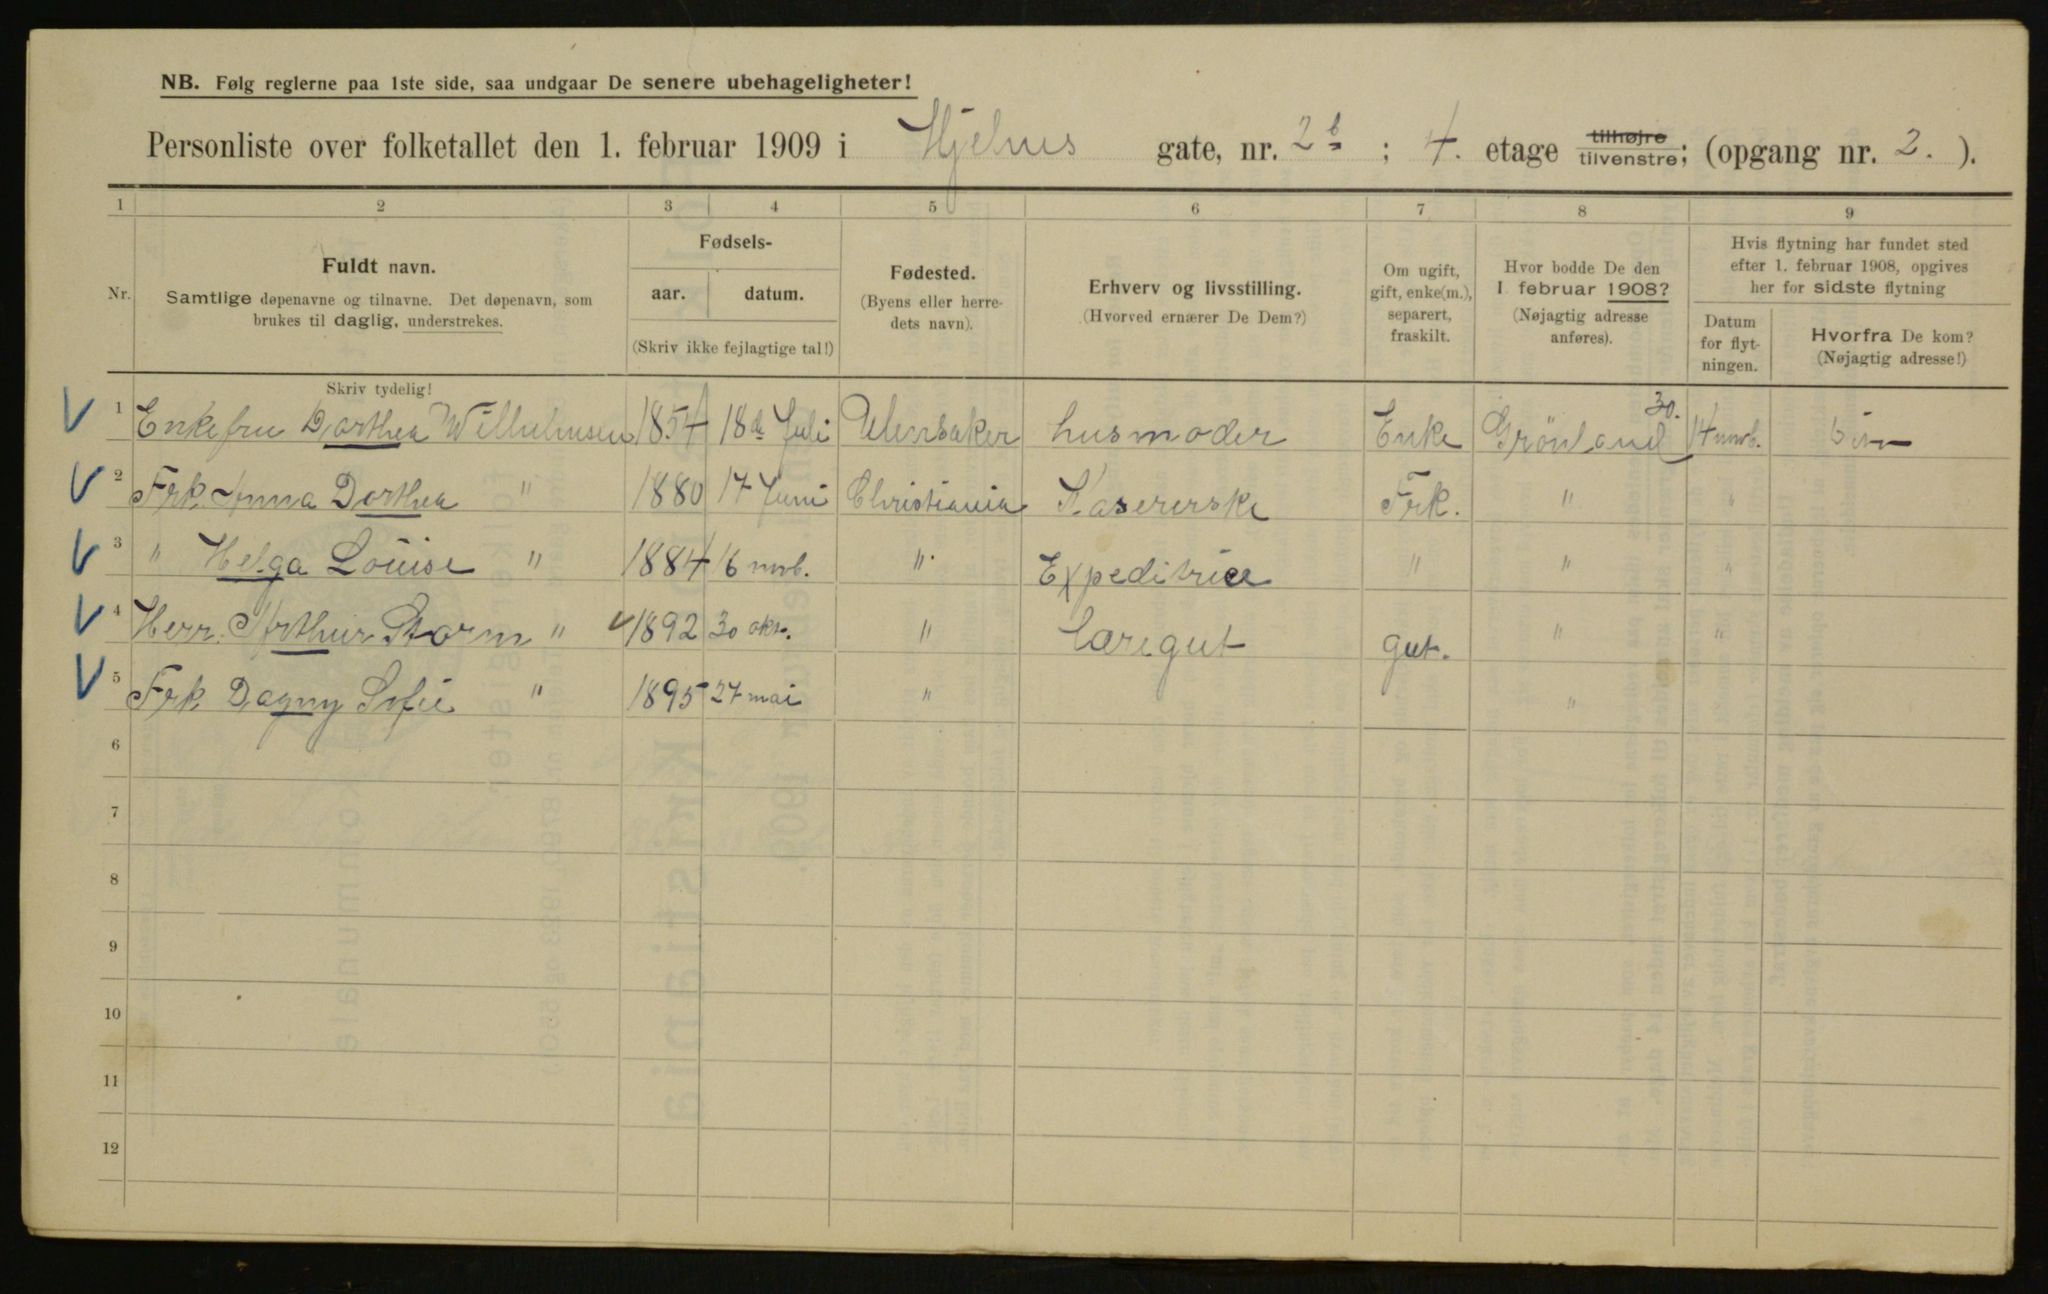 NB. Følg reglerne paa 1ste side, saa undgaar De senere ubehageligheter!
Personliste over folketallet den 1. februar 1909 i Hjelms gate, nr. 2b ; 4. etage tilhøjre tilvenstre; (opgang nr. 2. ).
1 2 3 4 5 6 7 8 9
Nr.
Fuldt navn.
Samtlige døpenavne og tilnavne. Det døpenavn, som
brukes til daglig, understrekes.
Skriv tydelig!
Fødsels-
aar. datum.
(Skriv ikke fejlagtige tal!)
Fødested.
(Byens eller herre-
dets navn).
Erhverv og livsstilling.
(Hvorved ernærer De Dem?)
Om ugift,
gift, enke(m.),
separert,
fraskilt.
Hvor bodde De den
1. februar 1908?
(Nøjagtig adresse
anføres).
Hvis flytning har fundet sted
efter 1. februar 1908, opgives
her for sidste flytning
Datum
for flyt-
ningen.
Hvorfra De kom?
(Nøjagtig adresse!)
1 Enkefru Dorthea Wilhelmsen 1854 18de Juli Ulensaker husmoder Enke Grönland 30. 14 novb.
2 Frk. Anna Dorthea " 1880 17 Juni Christiania Kasererske Frk. " "
3 " Helga Louise " 1884 16 novb. " Expeditrice " " "
4 Herr. Arthur Storm " 1892 30 okt. " Læregut gut. " "
5 Frk. Dagny Sofie " 1895 27 mai " "
6
7
8
9
10
11
12